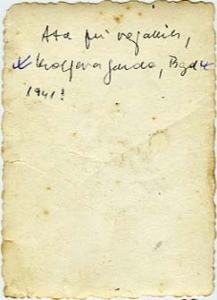 Ata pri vojacih,
Kraljeva garda, Bgd
1941!